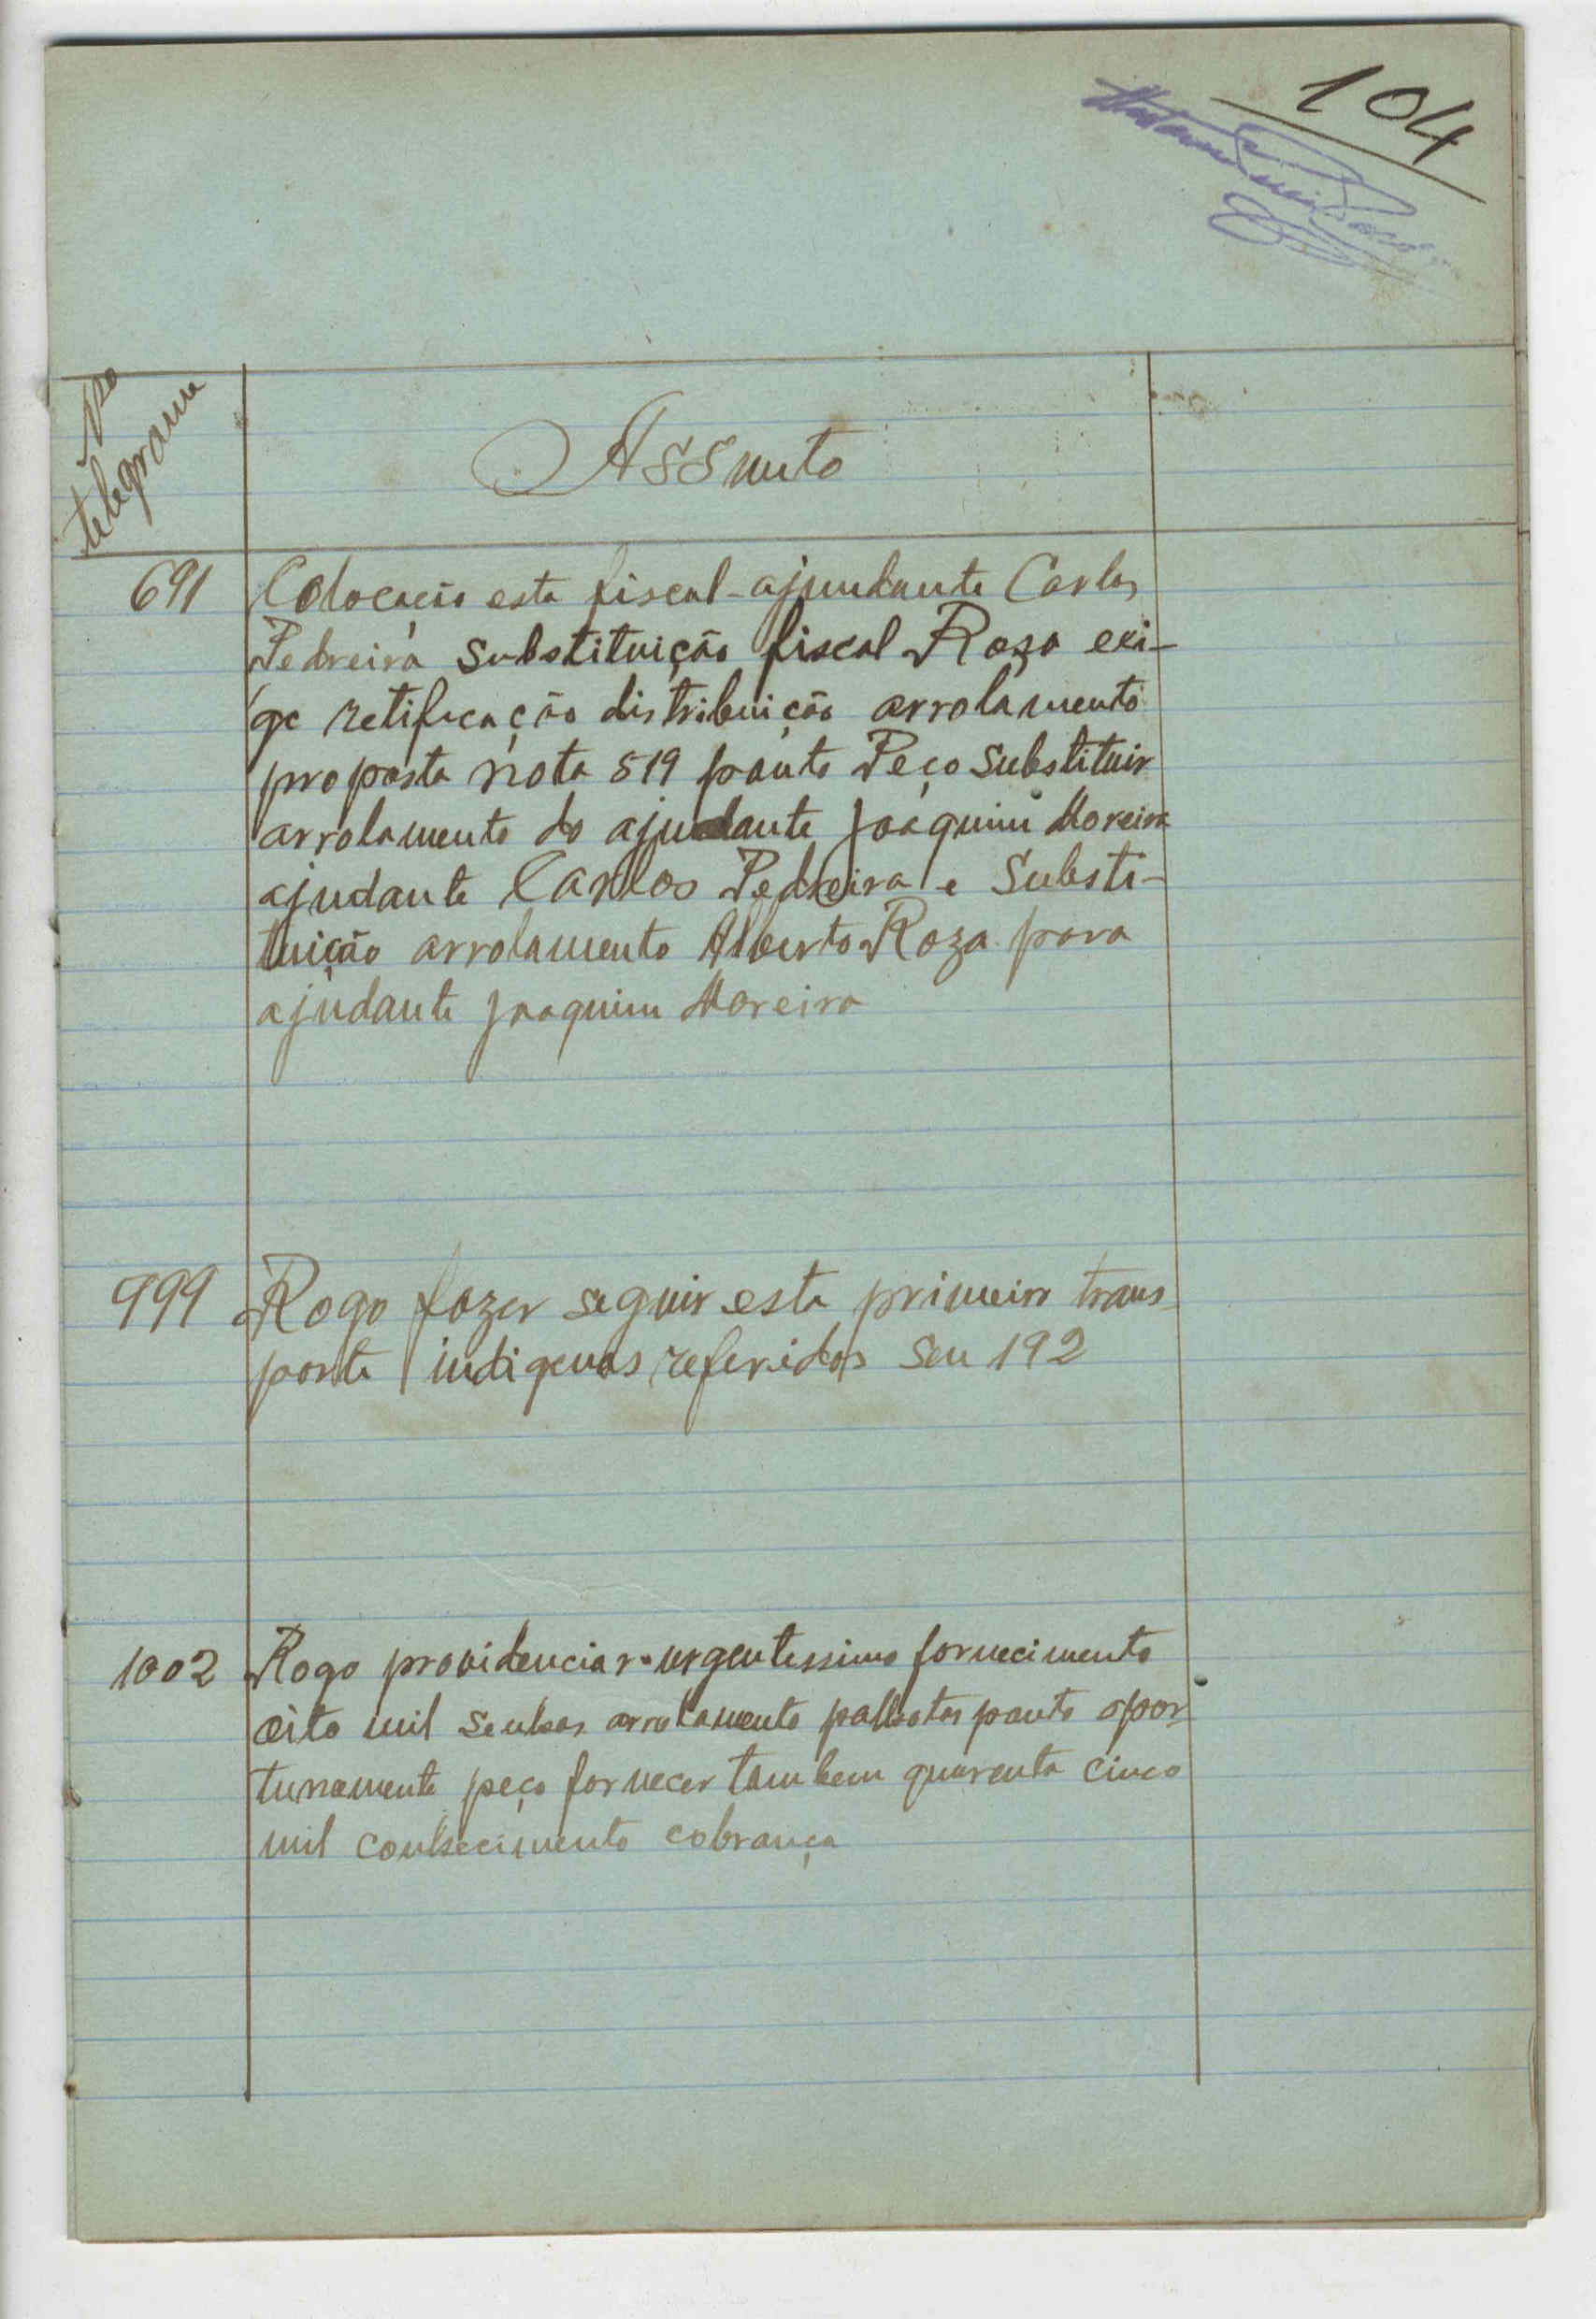 104
No telegrama
Assunto
691 Colocação esta fiscal-ajundante Carlos
Pedreira substituição fiscal Roza exi-
ge retificação distribuição arrolamento
proposta nota 519 ponto Peço substituir
arrolamento do ajudante Joaquim Moreira
ajudante Carlos Pedreira e Substi-
tuição arrolamento Alberto Roza para
ajudante Joaquim Moreira
999 Rogo fazer seguir esta primeiro trans-
porte indigenas referidos seu 192
1002 Rogo providenciar urgentissimo fornecimento
oito mil senhas arrolamento palhotas ponto opor-
tunamente peço fornecer tambem quarenta cinco
mil conhecimento cobrança